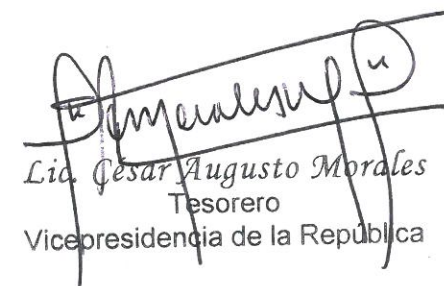 Lic. César Augusto Morales
Tesorero
Vicepresidencia de la República